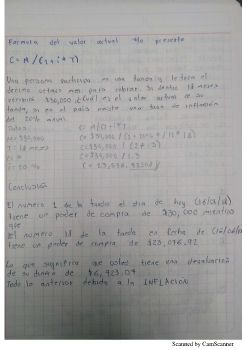 Formula del valor actual o presente
C = A / (1 + i * T)
Una persona participa en una tanda y le toca el
decimo octavo mes para cobrar. Si dentro 18 meses
recibirá $30,000 ¿Cuál es el valor actual de su
tanda, si en el país existe una tasa de inflación
del 20% anual.
Datos: C = A / (1 + i * T)
A = $30,000
T = 18 meses
C = ?
i = 20%
C = $30,000 / 1.3
Conclusión
El numero 1 de la tanda el día de hoy
tiene un poder de compra de $30,000 mientras
que
El numero 18 de la tanda en fecha de
tiene un poder de compra de $23,076.92
Lo que significa que usted tiene una devaluación
de su dinero de $6,923.07
Todo lo anterior debido a la INFLACION
Scanned by CamScanner